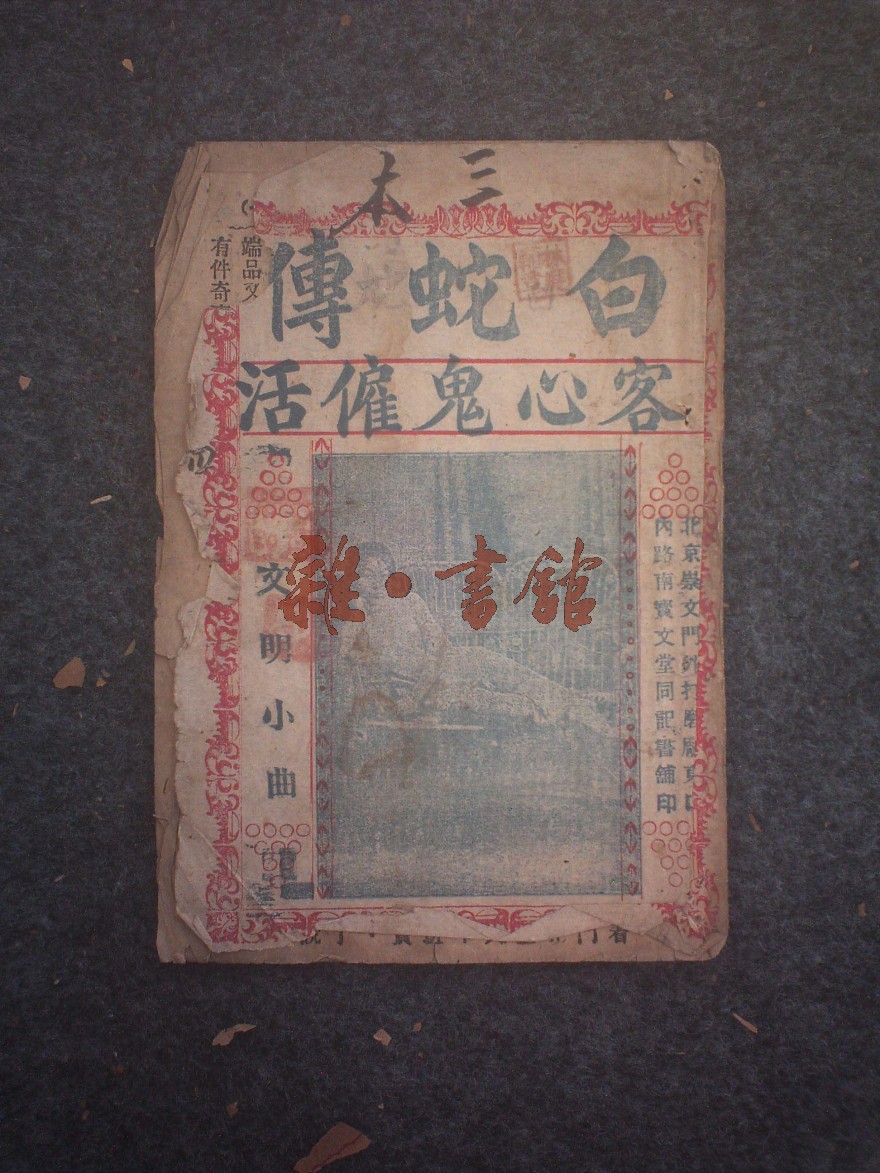 三本
白蛇傳
客心鬼僱活
北京崇文門外打磨廠東口
內路南寶文堂同記書舖印
雜·書館
文明小曲
端品又
有件奇
四